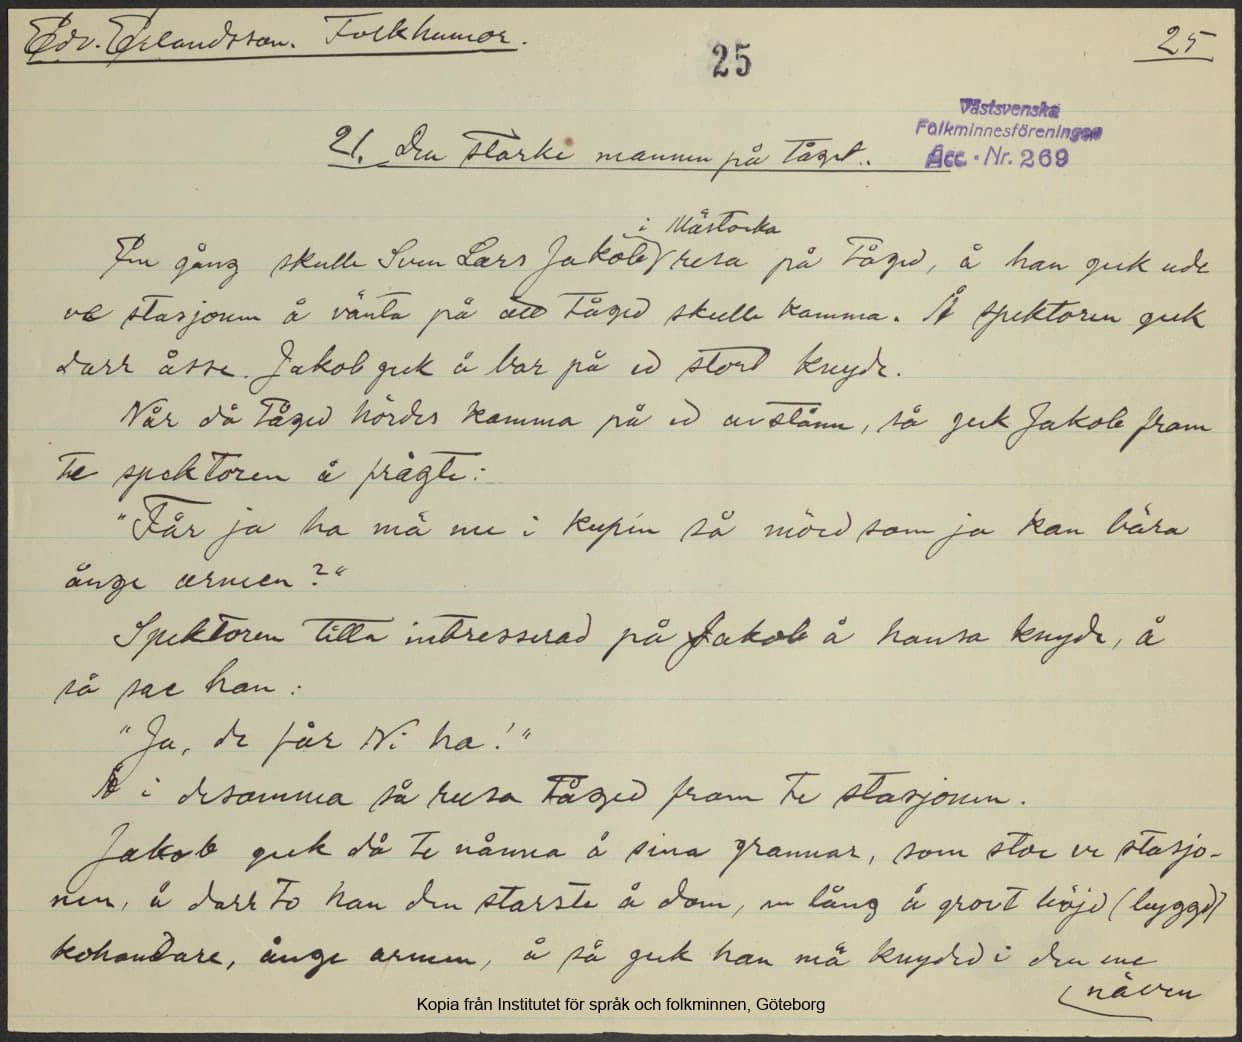 Edv. Erlandsson. Folkhumor.
25
25
Västsvenska
Folkminnesföreningen
Acc. Nr. 269
21. Den starke mannen på tåget.
i Mästocka
En gång skulle Sven Lars Jakob resa på tåged, å han gek ude
ve stasjonen å vänta på att tåged skulle komma. Å spektoren gek
darr åsse. Jakob gek å bar på ed stort knyde.
Når då tåged hördes komma på ed avstånn, så gek Jakob fram
te spektoren å frågte:
"Får ja ha mä me i kupén så möed som ja kan bära
ånge armen?"
Spektoren titta intresserad på Jakob å hansa knyde, å
så sae han:
"Ja, de får Ni ha!"
Å i desamma så rusa tåged fram te stasjonen.
Jakob gek då te nånna å sina grannar, som stoe ve stasjo-
nen, å darr to han den starste å dom, en lång å grovt böjd (byggd)
kohandare, ånge armen, å så gek han mä knyded i den ene
näven
Kopia från Institutet för språk och folkminnen, Göteborg